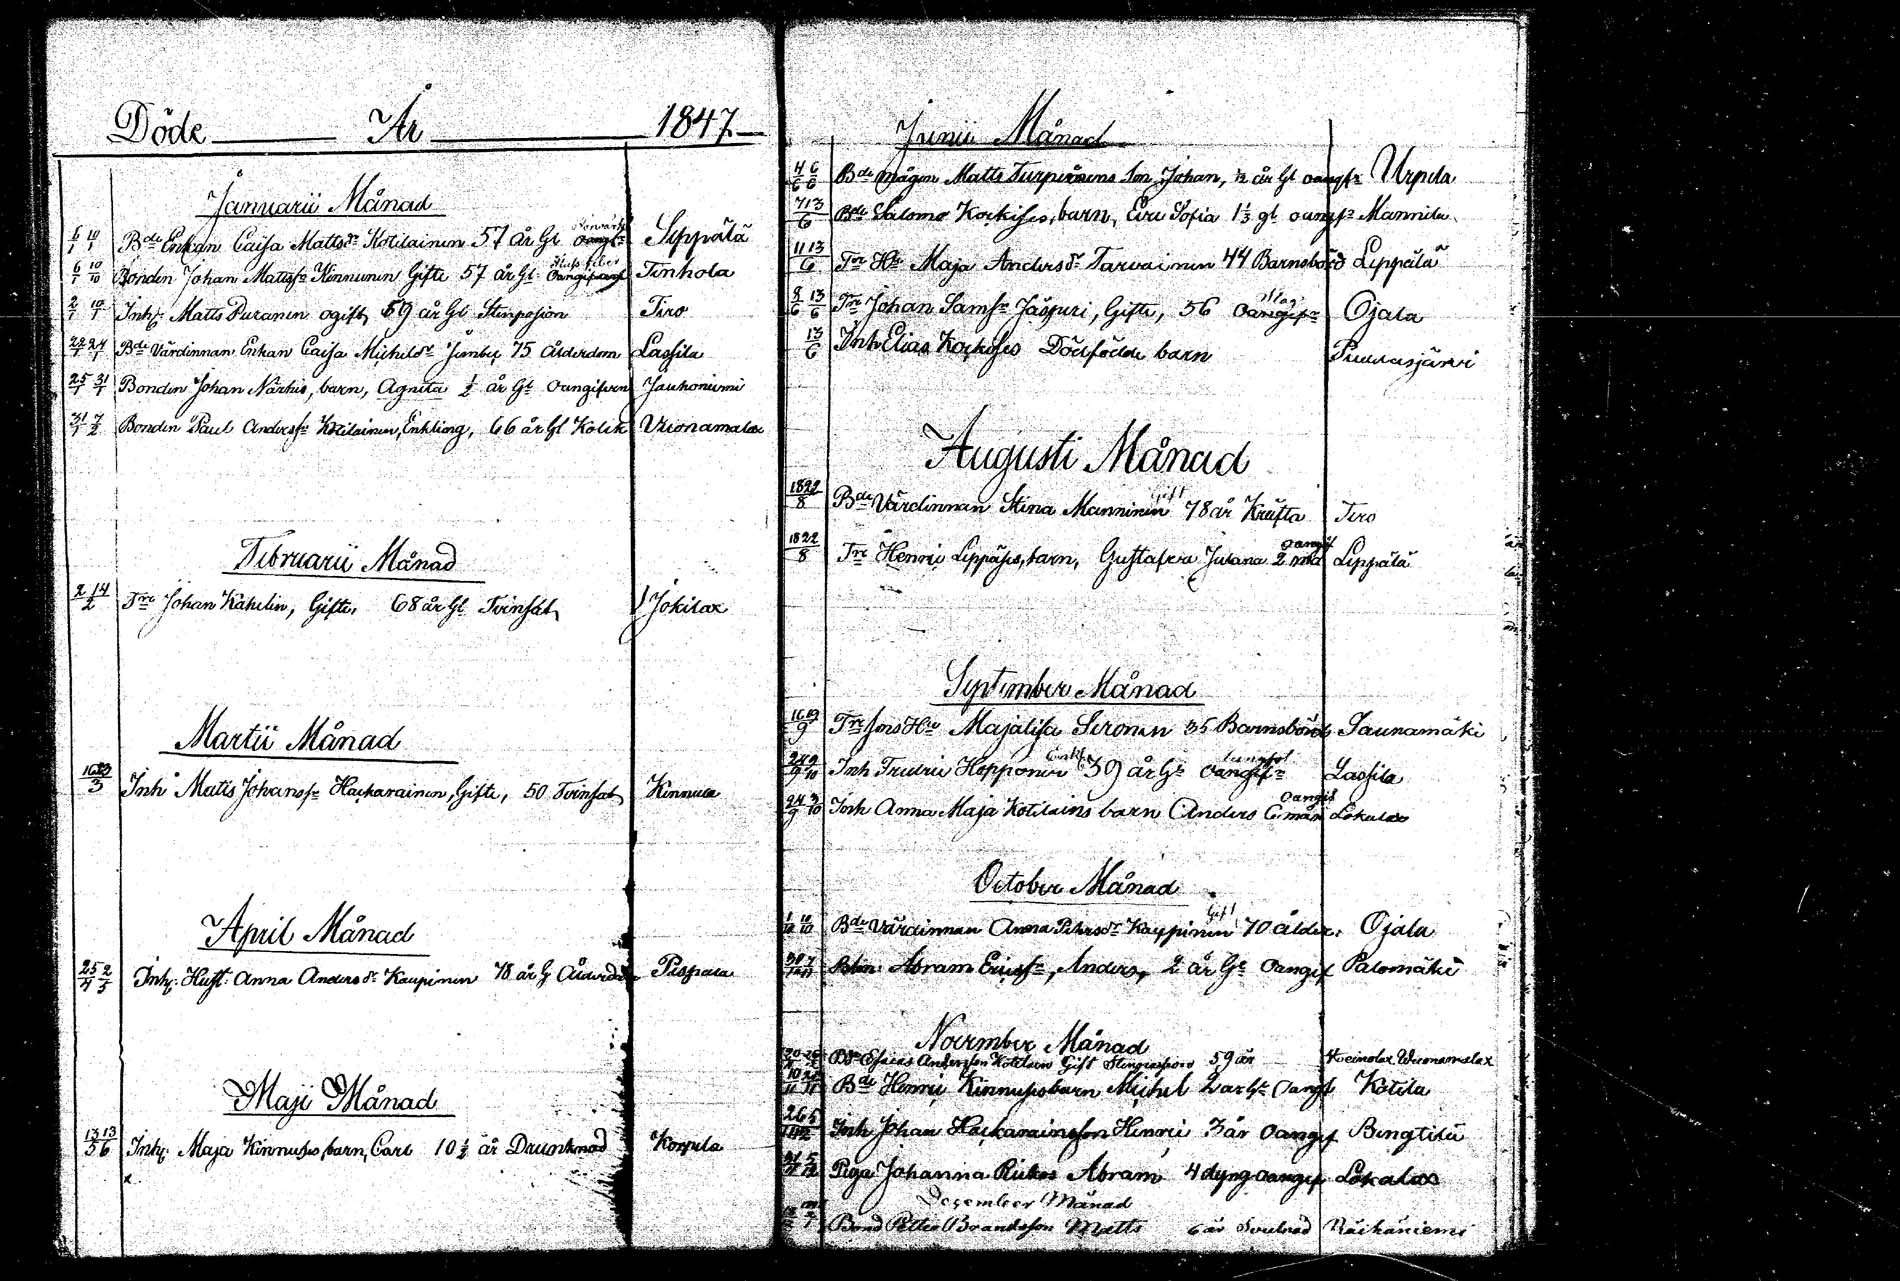 Döde År 1847
Januarii Månad
6/1 10/1 Bde Enkan Caisa Mattsdr Kotilainen 57 år Gl Oangifv Sippälä
6/1 10/10 Bonden Johan Mattsson Kinnunen Gifte 57 år Gl Oangifven Tinhola
2/1 10/1 Inh. Matts Puranen ogift 59 år Gl Stenpasion Tiro
22/1 24/1 Bde Värdinnan Enkan Caisa Michelsdr 75 Ålderdom Lassila
25/1 31/1 Bonden Johan Närhis, barn, Agneta ½ år Gl Oangifven Jauhoniemi
31/1 7/2 Bonden Paul Anderssn Kotilainen, Enkling, 66 år Gl Kolik Vuonamalax
Februarii Månad
2/2 14/2 Trr Johan Kähelin, Gifte, 68 år Gl Tvinsot Jokilax
Martii Månad
16/3 Inh Matts Johanssn Hackarainen, Gifte, 50 Tvinsot Kinnula
April Månad
25/4 2/5 Inh. Hust. Anna Andersdr Kaupinen 78 år G Ålderdom Pispala
Maji Månad
13/5 13/6 Inh. Maja Kinnuses, barn, Carl 10½ år Drunknad Korpela
Junii Månad
4/6 6/6 Bde mågen Matts Turpeinens Son Johan, ½ år Gl oangifn Urpila
7 13/6 Bde Salomo Korkises, barn, Eva Sofia 1⅓ gl oangifn Mannila
11 13/6 Trr Hu Maja Andersdr Tarvainen 44 Barnsbörd Lippälä
8/6 13/6 Trr Johan Samssn Jäspuri, Gifte, 56 Oangifn Ojala
13/6 Inh Elias Korkises Dödfödde barn Puurasjärvi
Augusti Månad
18 22/8 Bde Värdinnan Stina Manninen Gift 78 år Kräfta Tiro
18 22/8 Trr Henric Lippäses, barn, Gustafva Juliana 2 md oangif Lippälä
September Månad
16 19/9 Trr sons Hu Majalisa Sironen 35 Barnsbörd Saunamäki
Inh Fredric Hopponen Enkl 39 år Gl Oangifn lungsot Lassila
24/9 3/10 Inh Anna Maja Kotilains barn Anders 6 mån oangif Lokalax
October Månad
1/10 10/10 Bde Värdinnan Anna Petersdr Kauppinen Gift 70 ålder. Ojala
Abram Ericssn, Anders, 2 år Gl Oangif Palomäki
November Månad
Esaias Andersson Kotilain Gift 59 år Vuonamalax
Bde Henric Kinnuses barn Michel 2 år Gl Oangf Kotila
26 5 Inh Johan Hackarainsson Henric 3 år Oangif Bengtilä
Piga Johanna Rickes Abram 4 dyng oangif Lokalax
December Månad
Bond Petter Brandsson Matts 6 år Svulnad Räihäniemi